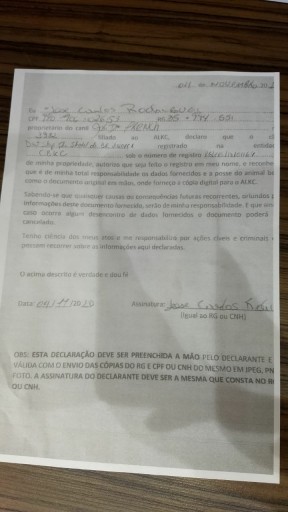 de Novembro
Eu Jose Carlos Rodrigues
CPF RG
proprietário do canil
filiado ao ALKC, declaro que o
registrado na entidade
CBKC sob o número de registro
de minha propriedade, autorizo que seja feito o registro em meu nome, e reconheço
que é de minha total responsabilidade os dados fornecidos e a posse do animal
como o documento original em mãos, onde forneço a cópia digital para o ALKC.
Sabendo-se que quaisquer causas ou consequências futuras recorrentes, oriundas
informações deste documento fornecido, serão de minha responsabilidade. E que
caso ocorra algum desencontro de dados fornecidos o documento poderá
cancelado.
Tenho ciência dos meus atos e me responsabilizo por ações cíveis e criminais
possam recorrer sobre as informações aqui declaradas.
O acima descrito é verdade e dou fé
Data: 04/11/2020 Assinatura: Jose Carlos
(Igual ao RG ou CNH)
OBS: ESTA DECLARAÇÃO DEVE SER PREENCHIDA A MÃO PELO DECLARANTE E
VÁLIDA COM O ENVIO DAS CÓPIAS DO RG E CPF OU CNH DO MESMO EM JPEG,
FOTO. A ASSINATURA DO DECLARANTE DEVE SER A MESMA QUE CONSTA NO
OU CNH.